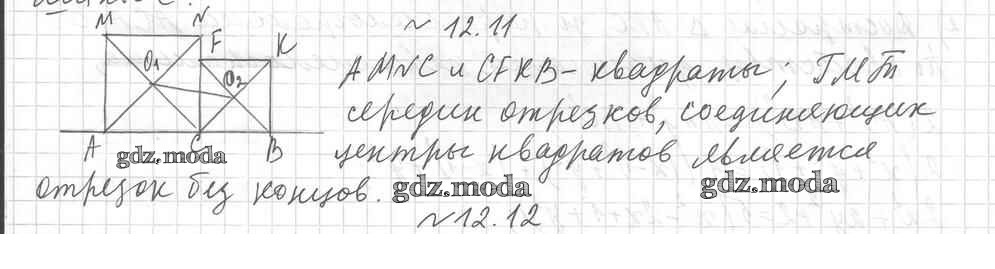 M N № 12.11
F K
O1 O2 AMNC и CFKB - квадраты; ГМТ
середин отрезков, соединяющих
A C B центры квадратов является
gdz.moda
отрезок без концов. gdz.moda gdz.moda
№ 12.12